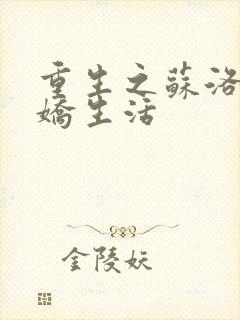 重生之蘇洛
嬌生活
金陵妖